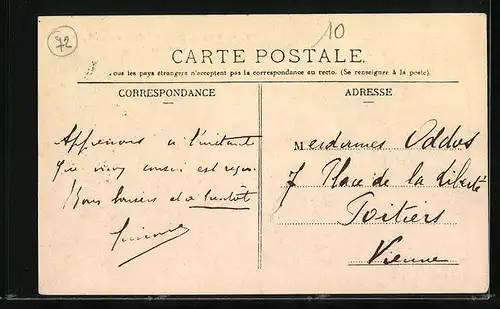 72
10
CARTE POSTALE
ous les pays étrangers n'acceptent pas la correspondance au recto. (Se renseigner à la poste).
CORRESPONDANCE
ADRESSE
Apprenons à l'instant
que mon est reçu.
Bons baisers et à bientôt
Mesdames Oddos
7 Place de la Liberté
Poitiers
Vienne